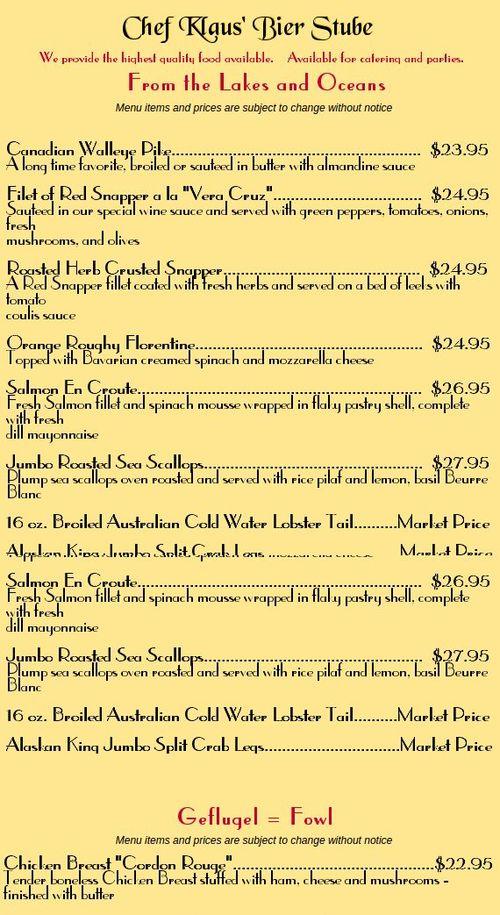 Chef Klaus' Bier Stube
We provide the highest quality food available. Available for catering and parties.
From the Lakes and Oceans
Menu items and prices are subject to change without notice
Canadian Walleye Pike............................................................ $23.95
A long time favorite, broiled or sauteed in butter with almandine sauce
Filet of Red Snapper a la "Vera Cruz"................................... $24.95
Sauteed in our special wine sauce and served with green peppers, tomatoes, onions,
fresh
mushrooms, and olives
Roasted Herb Crusted Snapper.............................................. $24.95
A Red Snapper fillet coated with fresh herbs and served on a bed of leeks with
tomato
coulis sauce
Orange Roughy Florentine..................................................... $24.95
Topped with Bavarian creamed spinach and mozzarella cheese
Salmon En Croute.................................................................... $26.95
Fresh Salmon fillet and spinach mousse wrapped in flaky pastry shell, complete
with fresh
dill mayonnaise
Jumbo Roasted Sea Scallops................................................... $27.95
Plump sea scallops oven roasted and served with rice pilaf and lemon, basil Beurre
Blanc
16 oz. Broiled Australian Cold Water Lobster Tail..........Market Price
King Jumbo Split Crab Legs mozzarella cheese Market Price
Salmon En Croute.................................................................... $26.95
Fresh Salmon fillet and spinach mousse wrapped in flaky pastry shell, complete
with fresh
dill mayonnaise
Jumbo Roasted Sea Scallops................................................... $27.95
Plump sea scallops oven roasted and served with rice pilaf and lemon, basil Beurre
Blanc
16 oz. Broiled Australian Cold Water Lobster Tail..........Market Price
Alaskan King Jumbo Split Crab Legs................................Market Price
Geflugel = Fowl
Menu items and prices are subject to change without notice
Chicken Breast "Cordon Rouge"................................................$22.95
Tender boneless Chicken Breast stuffed with ham, cheese and mushrooms -
finished with butter